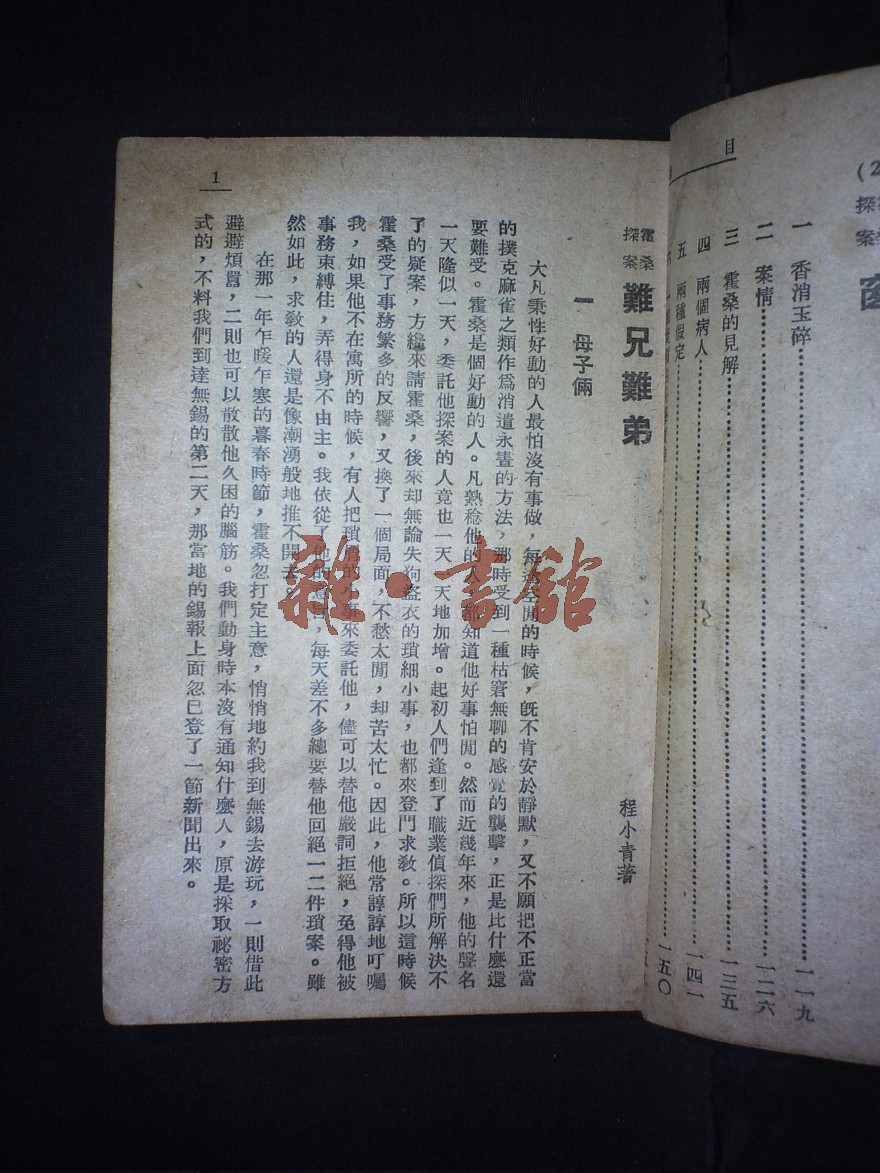 目
(2
探
案
一 香消玉碎……一一九
二 案情……一二六
三 霍桑的見解……一三五
四 兩個病人……一四一
五 兩種假定……一五〇
霍桑探案 難兄難弟
程小青著
一 母子倆
大凡秉性好動的人最怕沒有事做，每逢空閒的時候，旣不肯安於靜默，又不願把不正當
的撲克麻雀之類作爲消遣永晝的方法，那時受到一種枯窘無聊的感覺的襲擊，正是比什麽還
要難受。霍桑是個好動的人。凡熟稔他的人，都知道他好事怕閒。然而近幾年來，他的聲名
一天隆似一天，委託他探案的人竟也一天一天地加增。起初人們逢到了職業偵探們所解決不
了的疑案，方纔來請霍桑，後來却無論失狗盜衣的瑣細小事，也都來登門求敎。所以這時候
霍桑受了事務繁多的反響，又換了一個局面，不愁太閒，却苦太忙。因此，他常諄諄地叮囑
我，如果他不在寓所的時候，有人把瑣屑的小事來委託他，儘可以替他嚴詞拒絕，免得他被
事務束縛住，弄得身不由主。我依從了他的意旨，每天差不多總要替他回絕一二件瑣案。雖
然如此，求敎的人還是像潮湧般地推不開去。
在那一年乍暖乍寒的暮春時節，霍桑忽打定主意，悄悄地約我到無錫去游玩，一則借此
避避煩囂，二則也可以散散他久困的腦筋。我們動身時本沒有通知什麽人，原是採取祕密方
式的，不料我們到達無錫的第二天，那當地的錫報上面忽已登了一節新聞出來。
1
雜·書館